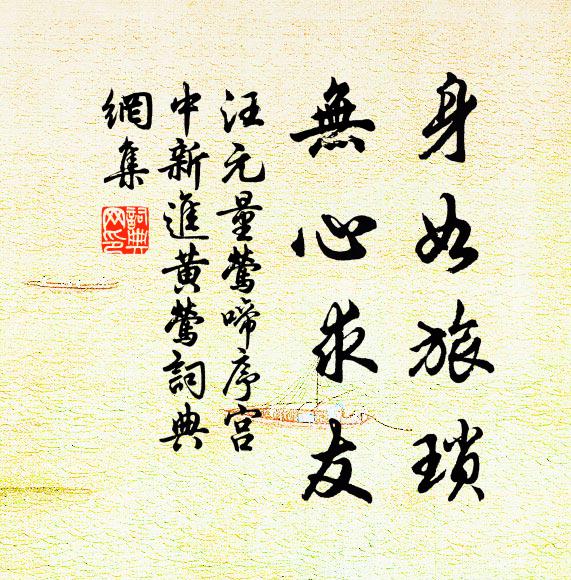 身如旅琐
無心求友
汪元量鶯啼序宫
中新進黄鶯詞典
網集
詞典网印